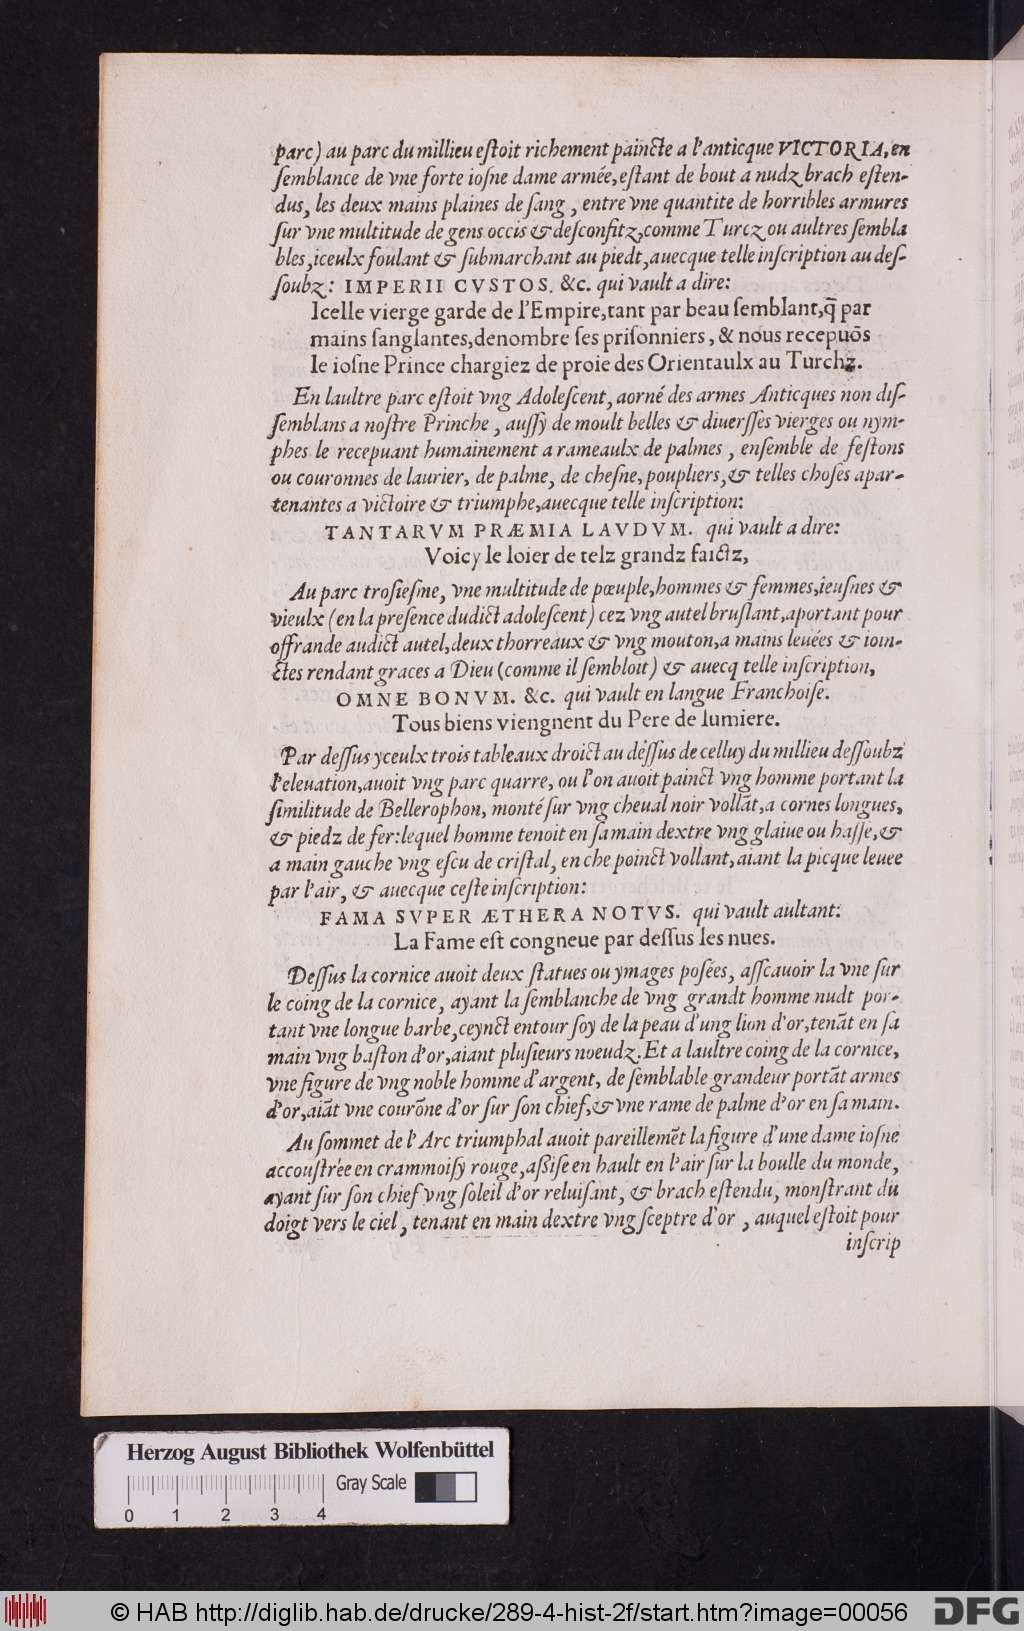 parc) au parc du millieu eſtoit richement paincte a l'anticque VICTORIA, en
ſemblance de vne forte ioſne dame armée, eſtant de bout a nudz brach eſten-
dus, les deux mains plaines de ſang, entre vne quantite de horribles armures
ſur vne multitude de gens occis & deſconfitz, comme Turcz ou aultres ſembla
bles, iceulx foulant & ſubmarchant au piedt, auecque telle inſcription au deſ-
ſoubz: IMPERII CVSTOS. &c. qui vault a dire:
Icelle vierge garde de l'Empire, tant par beau ſemblant, q̃ par
mains ſanglantes, denombre ſes priſonniers, & nous recepuõs
le ioſne Prince chargiez de proie des Orientaulx au Turchz.
En laultre parc eſtoit vng Adoleſcent, aorné des armes Anticques non diſ-
ſemblans a noſtre Prinche, auſſy de moult belles & diuerſſes vierges ou nym-
phes le recepuant humainement a rameaulx de palmes, enſemble de feſtons
ou couronnes de laurier, de palme, de cheſne, poupliers, & telles choſes apar-
tenantes a victoire & triumphe, auecque telle inſcription:
TANTARVM PRÆMIA LAVDVM. qui vault a dire:
Voicy le loier de telz grandz faictz,
Au parc troſieſme, vne multitude de pœuple, hommes & femmes, ieuſnes &
vieulx (en la preſence dudict adoleſcent) cez vng autel bruſlant, aportant pour
offrande audict autel, deux thorreaux & vng mouton, a mains leuées & ioin-
ctes rendant graces a Dieu (comme il ſembloit) & auecq telle inſcription,
OMNE BONVM. &c. qui vault en langue Franchoiſe.
Tous biens viengnent du Pere de lumiere.
Par deſſus yceulx trois tableaux droict au deſſus de celluy du millieu deſſoubz
l'eleuation, auoit vng parc quarre, ou l'on auoit painct vng homme portant la
ſimilitude de Bellerophon, monté ſur vng cheual noir vollãt, a cornes longues,
& piedz de fer: lequel homme tenoit en ſa main dextre vng glaiue ou haſſe, &
a main gauche vng eſcu de criſtal, en che poinct vollant, aiant la picque leuee
par l'air, & auecque ceſte inſcription:
FAMA SVPER ÆTHERA NOTVS. qui vault aultant:
La Fame eſt congneue par deſſus les nues.
Deſſus la cornice auoit deux ſtatues ou ymages poſées, aſſcauoir la vne ſur
le coing de la cornice, ayant la ſemblanche de vng grandt homme nudt por-
tant vne longue barbe, ceynct entour ſoy de la peau d'ung lion d'or, tenãt en ſa
main vng baſton d'or, aiant pluſieurs noeudz. Et a laultre coing de la cornice,
vne figure de vng noble homme d'argent, de ſemblable grandeur portãt armes
d'or, aiãt vne courõne d'or ſur ſon chief, & vne rame de palme d'or en ſa main.
Au ſommet de l'Arc triumphal auoit pareillemẽt la figure d'une dame ioſne
accouſtrée en crammoiſy rouge, aſſiſe en hault en l'air ſur la boulle du monde,
ayant ſur ſon chief vng ſoleil d'or reluiſant, & brach eſtendu, monſtrant du
doigt vers le ciel, tenant en main dextre vng ſceptre d'or, auquel eſtoit pour
inſcrip
Herzog August Bibliothek Wolfenbüttel
Gray Scale
0 1 2 3 4
© HAB http://diglib.hab.de/drucke/289-4-hist-2f/start.htm?image=00056
DFG